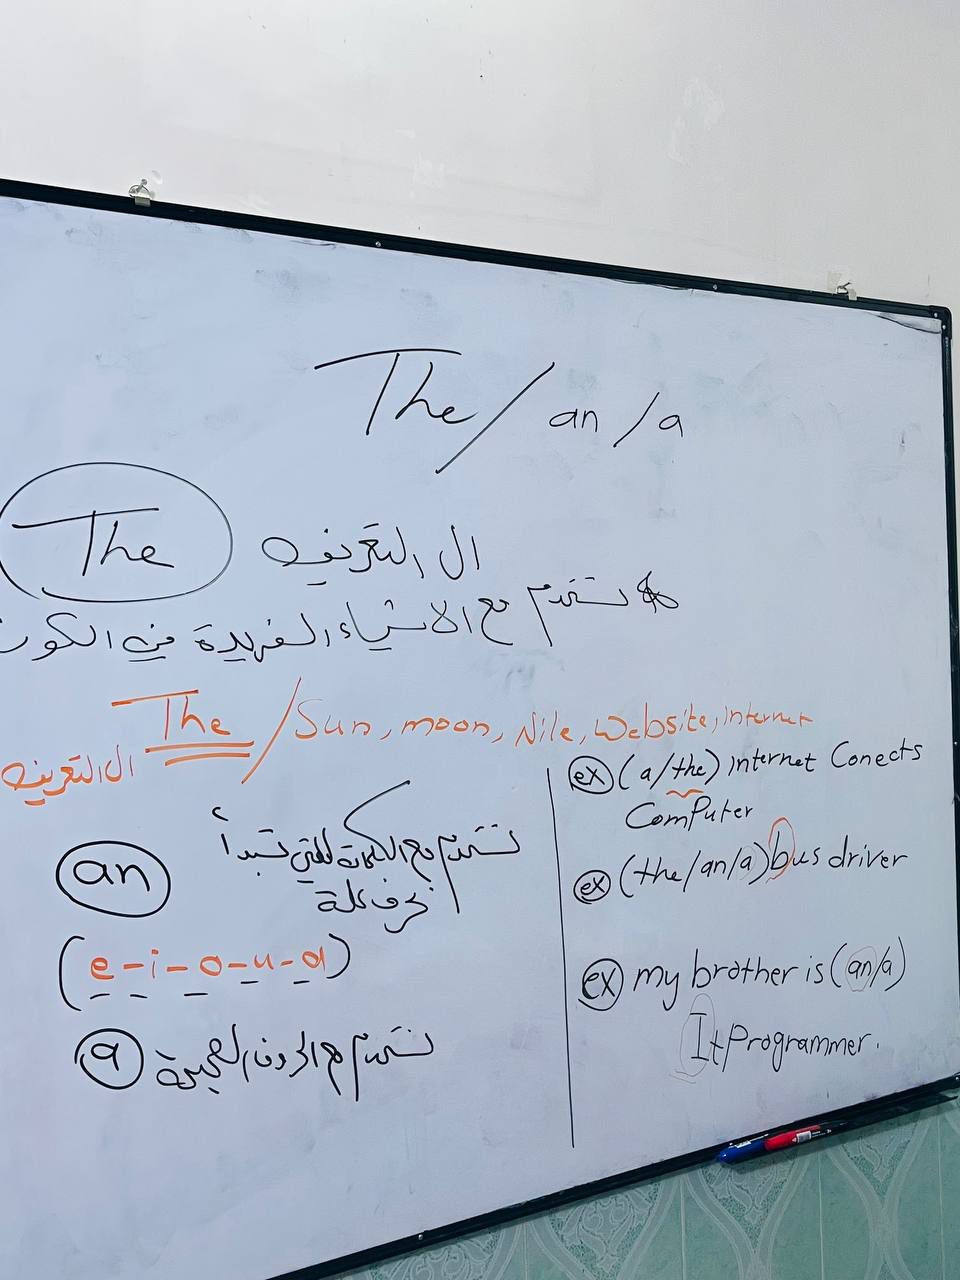 The / an / a
The ال التعريف
تستخدم مع الاشياء الفريدة في الكون
The / Sun, moon, Nile, Website, internet
ال التعريف
an تستخدم مع الكلمات اللتي تبدأ
بحرف علة
(e-i-o-u-a)
a تستخدم مع الحروف الصحيحة
ex (a/the) internet Conects
Computer
ex (the/an/a) bus driver
ex my brother is (an/a)
It Programmer.